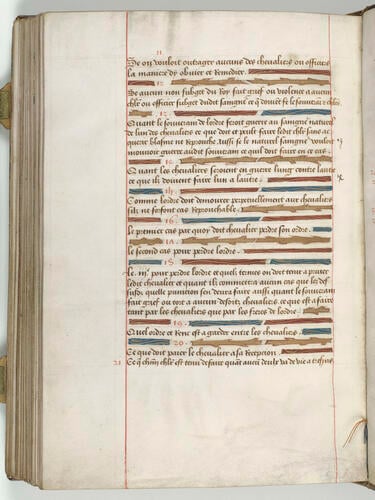 11.
Se on vouloit oultrager aucuns des chevaliers ou officiers
la maniere dy obvier et remedier.
12.
Se aucun non subget du Roy fait grief ou violence a aucun
chlr ou officier subget dudit
13.
Quant le souverain de lordre feroit guerre au saingne naturel
de lun des chevaliers et que doit et peult faire ledit chlr sans ac
querir blasme ne reprouche Aussi se le naturel saingne vouloit
mouvoir guerre audit souverain et quil doit faire en ce cas
14.
Quant les chevaliers seroient en guerre lung contre lautre
et que ilz doivent faire lun a lautre
15.
Comme lordre doit demourer perpetuellement aux chevaliers
silz ne font cas reprouchable.
16.
Le premier cas par quoy doit chevalier perdre son ordre.
17.
Le second cas pour perdre lordre.
18.
Le iije pour perdre lordre et quelz termes on doit tenir a priver
ledit chevalier et quant il commettra aucun cas que les des
susd. quelle punition sen devra faire aussi quant le souverain
fait grief ou tort a aucun desdits chevaliers, et que est a faire
tant par les chevaliers que par les freres de lordre
19.
Quel ordre et renc est a garder entre les chevaliers.
20.
Ce que doit paier le chevalier a sa reception
21. Ce que chun chlr est tenu de faire quant aucun deulx va de vie a trespas